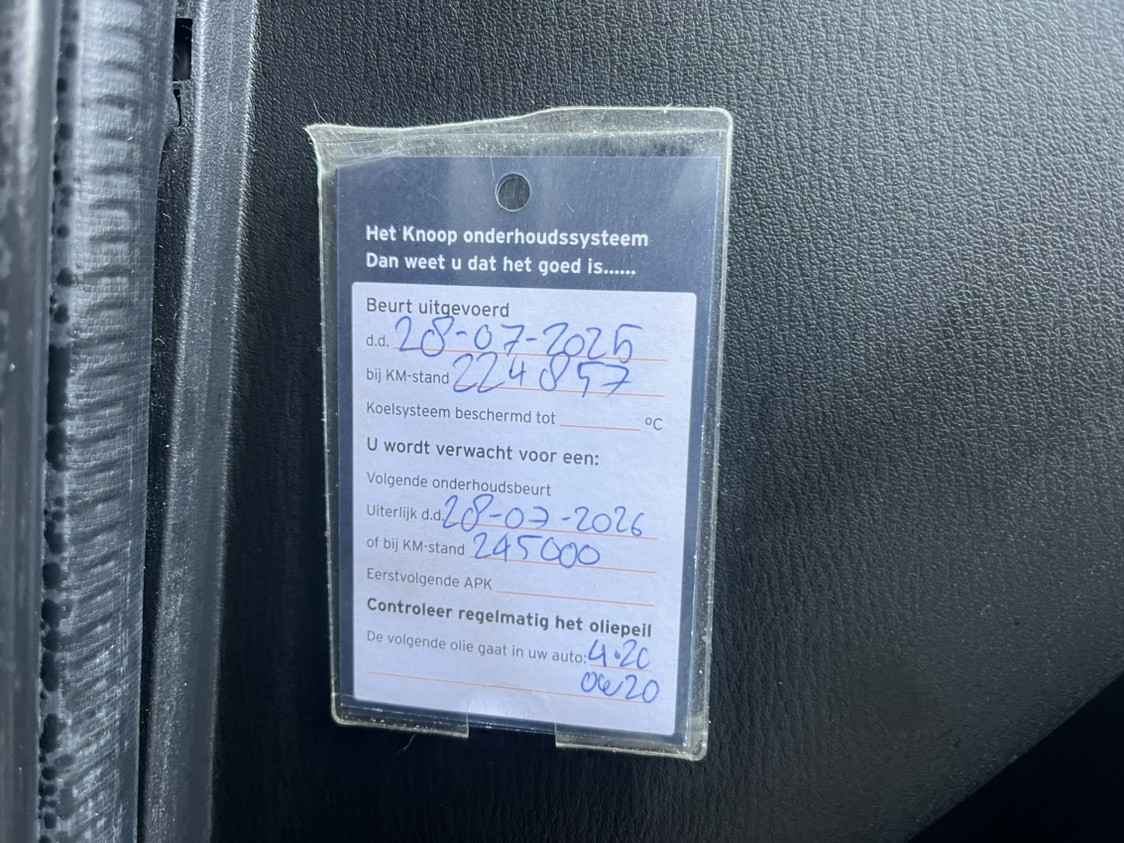 Het Knoop onderhoudssysteem
Dan weet u dat het goed is......
Beurt uitgevoerd
d.d. 28-07-2025
bij KM-stand 224857
Koelsysteem beschermd tot ºC
U wordt verwacht voor een:
Volgende onderhoudsbeurt
Uiterlijk d.d. 28-07-2026
of bij KM-stand 245000
Eerstvolgende APK
Controleer regelmatig het oliepeil
De volgende olie gaat in uw auto: